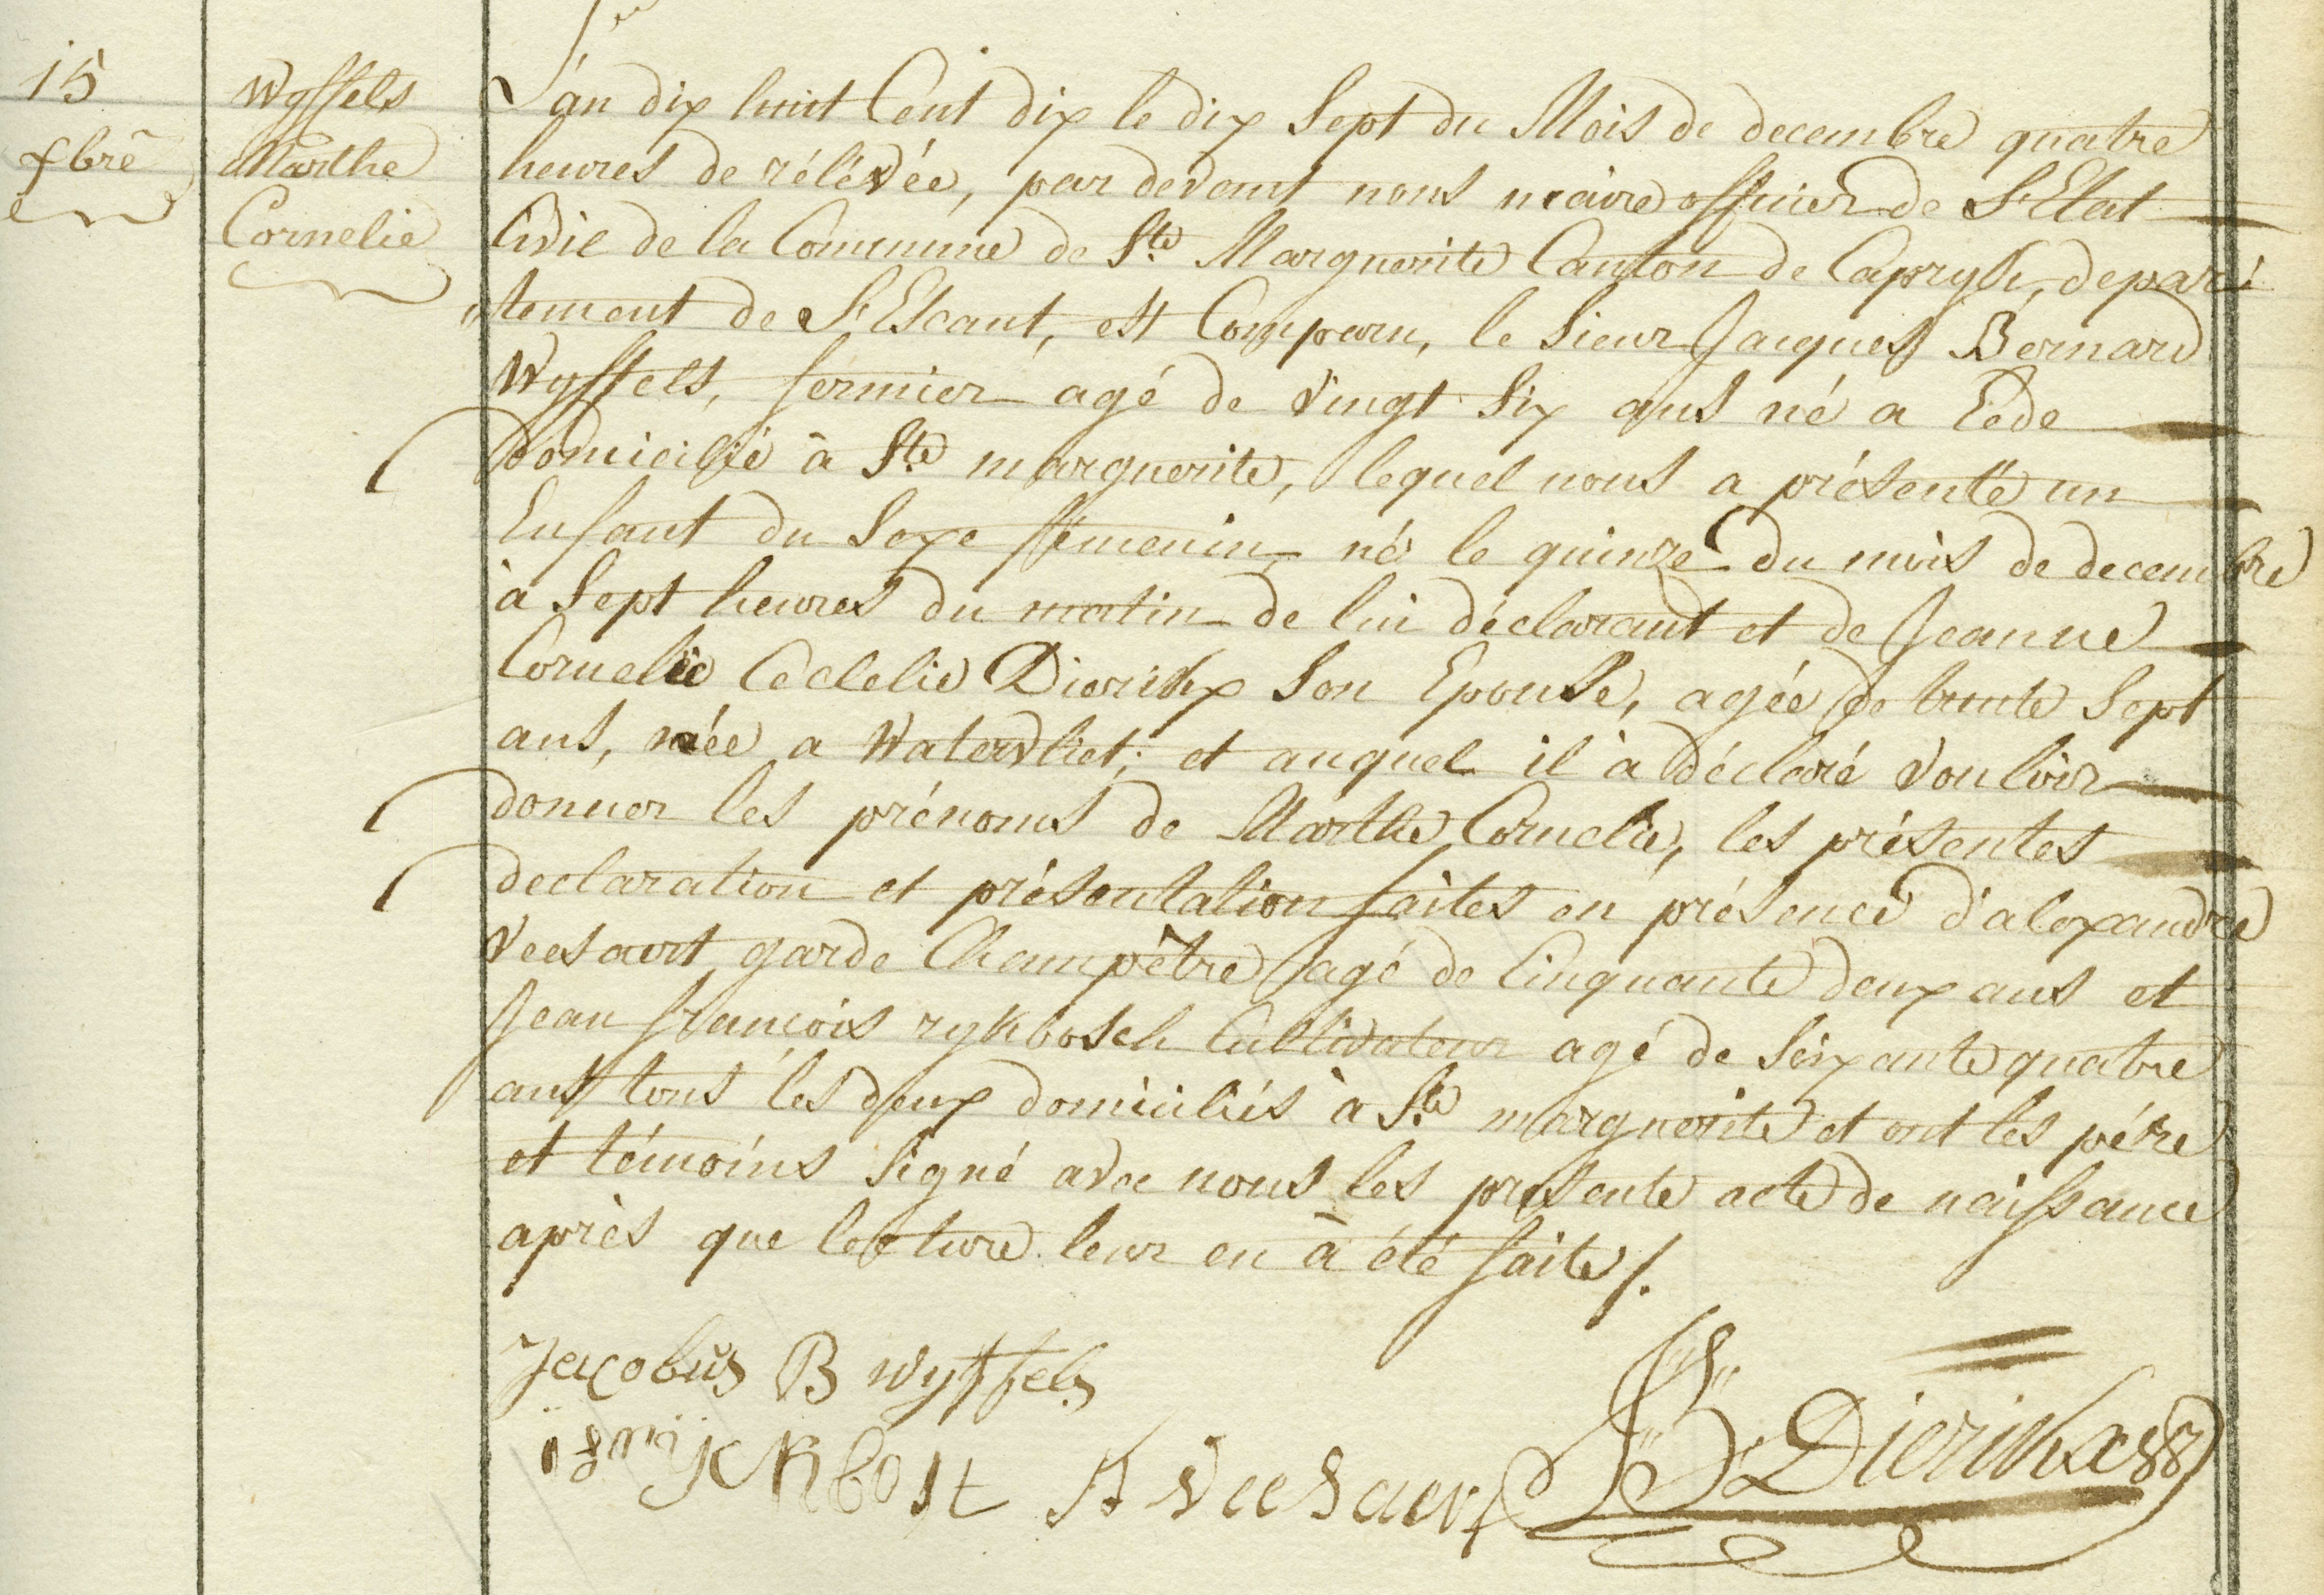 15
xbrē
Wyffels
Marthe
Cornelie
L'an dix huit Cent dix le dix Sept du Mois de decembre quatre
heures de rélévée, par devant nous maire officier de L'Etat
Civil de la Commune de Ste Marguerite Canton de Capryk, depar:
:tement de L'Escaut, est Comparu, le Sieur Jacques Bernard
Wyffels, fermier agé de vingt Six ans né a Eede
domicilié à Ste marguerite, lequel nous a présenté un
Enfant du Sexe fémenin, né le quinze du mois de decembre
à Sept heures du matin de lui déclarant et de Jeanne
Cornelie Ceclelie Dierickx Son Epouse, agée de trente Sept
ans, née a Watervliet; et auquel il à déclaré vouloir
donner les prénoms de Marthe Cornelie, les présentes
declaration et présentation faites en présence d'alexandre
veesaert garde Champêtre agé de Cinquante deux ans et
Jean françois rykbosch Cultivateur agé de Soixante quatre
ans tous les deux domiciliés à Ste marguerite et ont les pére
et témoins Signé avec nous les presente acte de naissance
après que lecture leur en à été faite /.
Jacobus B Wyffels
ijckbost A Veesaert JB Dierickx